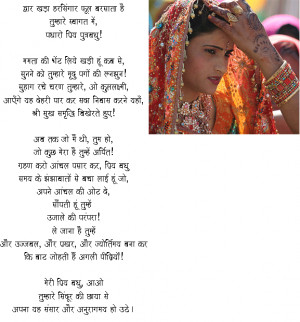 द्वार खड़ा हरसिंगार फूल बरसाता है
तुम्हारे स्वागत में,
पधारो प्रिय पुत्रवधू!
ममता की भेंट लिये खड़ी हूं कब से,
सुनने को तुम्हारे मृदु पगों की रुनझुन!
सुहाग रचे चरण तुम्हारे, ओ कुललक्ष्मी,
आएंगे चह देहरी पार कर सदा निवास करने यहां,
श्री सुख समृद्धि बिखेरते हुए!
अब तक जो मैं थी, तुम हो,
जो कुछ मेरा है तुम्हें अर्पित!
ग्रहण करो आंचल पसार कर, प्रिय वधू,
समय के झंझावातों से बचा लाई हूं जो,
अपने आंचल की ओट दे,
सौंपती हूं तुम्हें
उजाले की परंपरा!
ले जाना है तुम्हें
और उज्जवल, और प्रखर, और ज्योर्तिमय बना कर
कि बाट जोहती हैं अगली पीढ़ियाँ!
मेरी प्रिय वधू, आओ
तुम्हारे सिंदूर की छाया से
अपना यह संसार और अनुरागमय हो उठे।